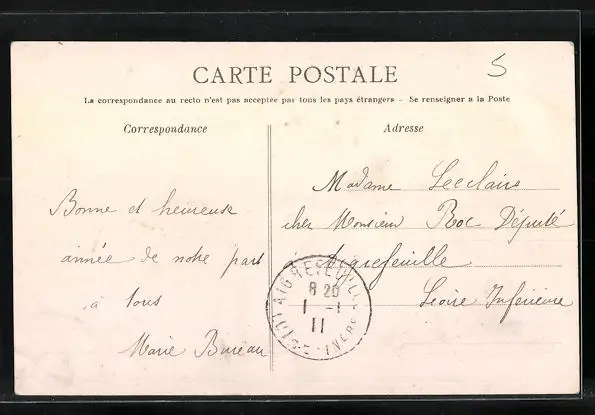 5
CARTE POSTALE
La correspondance au recto n'est pas acceptée par tous les pays étrangers - Se renseigner a la Poste
Correspondance
Adresse
Bonne et heureuse
année de notre part
à tous
Marie Bureau
Madame Leclair
chez Monsieur Roc Député
Aigrefeuille
Loire Inférieure
AIGREFEUILLE
8 20
1 -1
11
LOIRE-INFRE